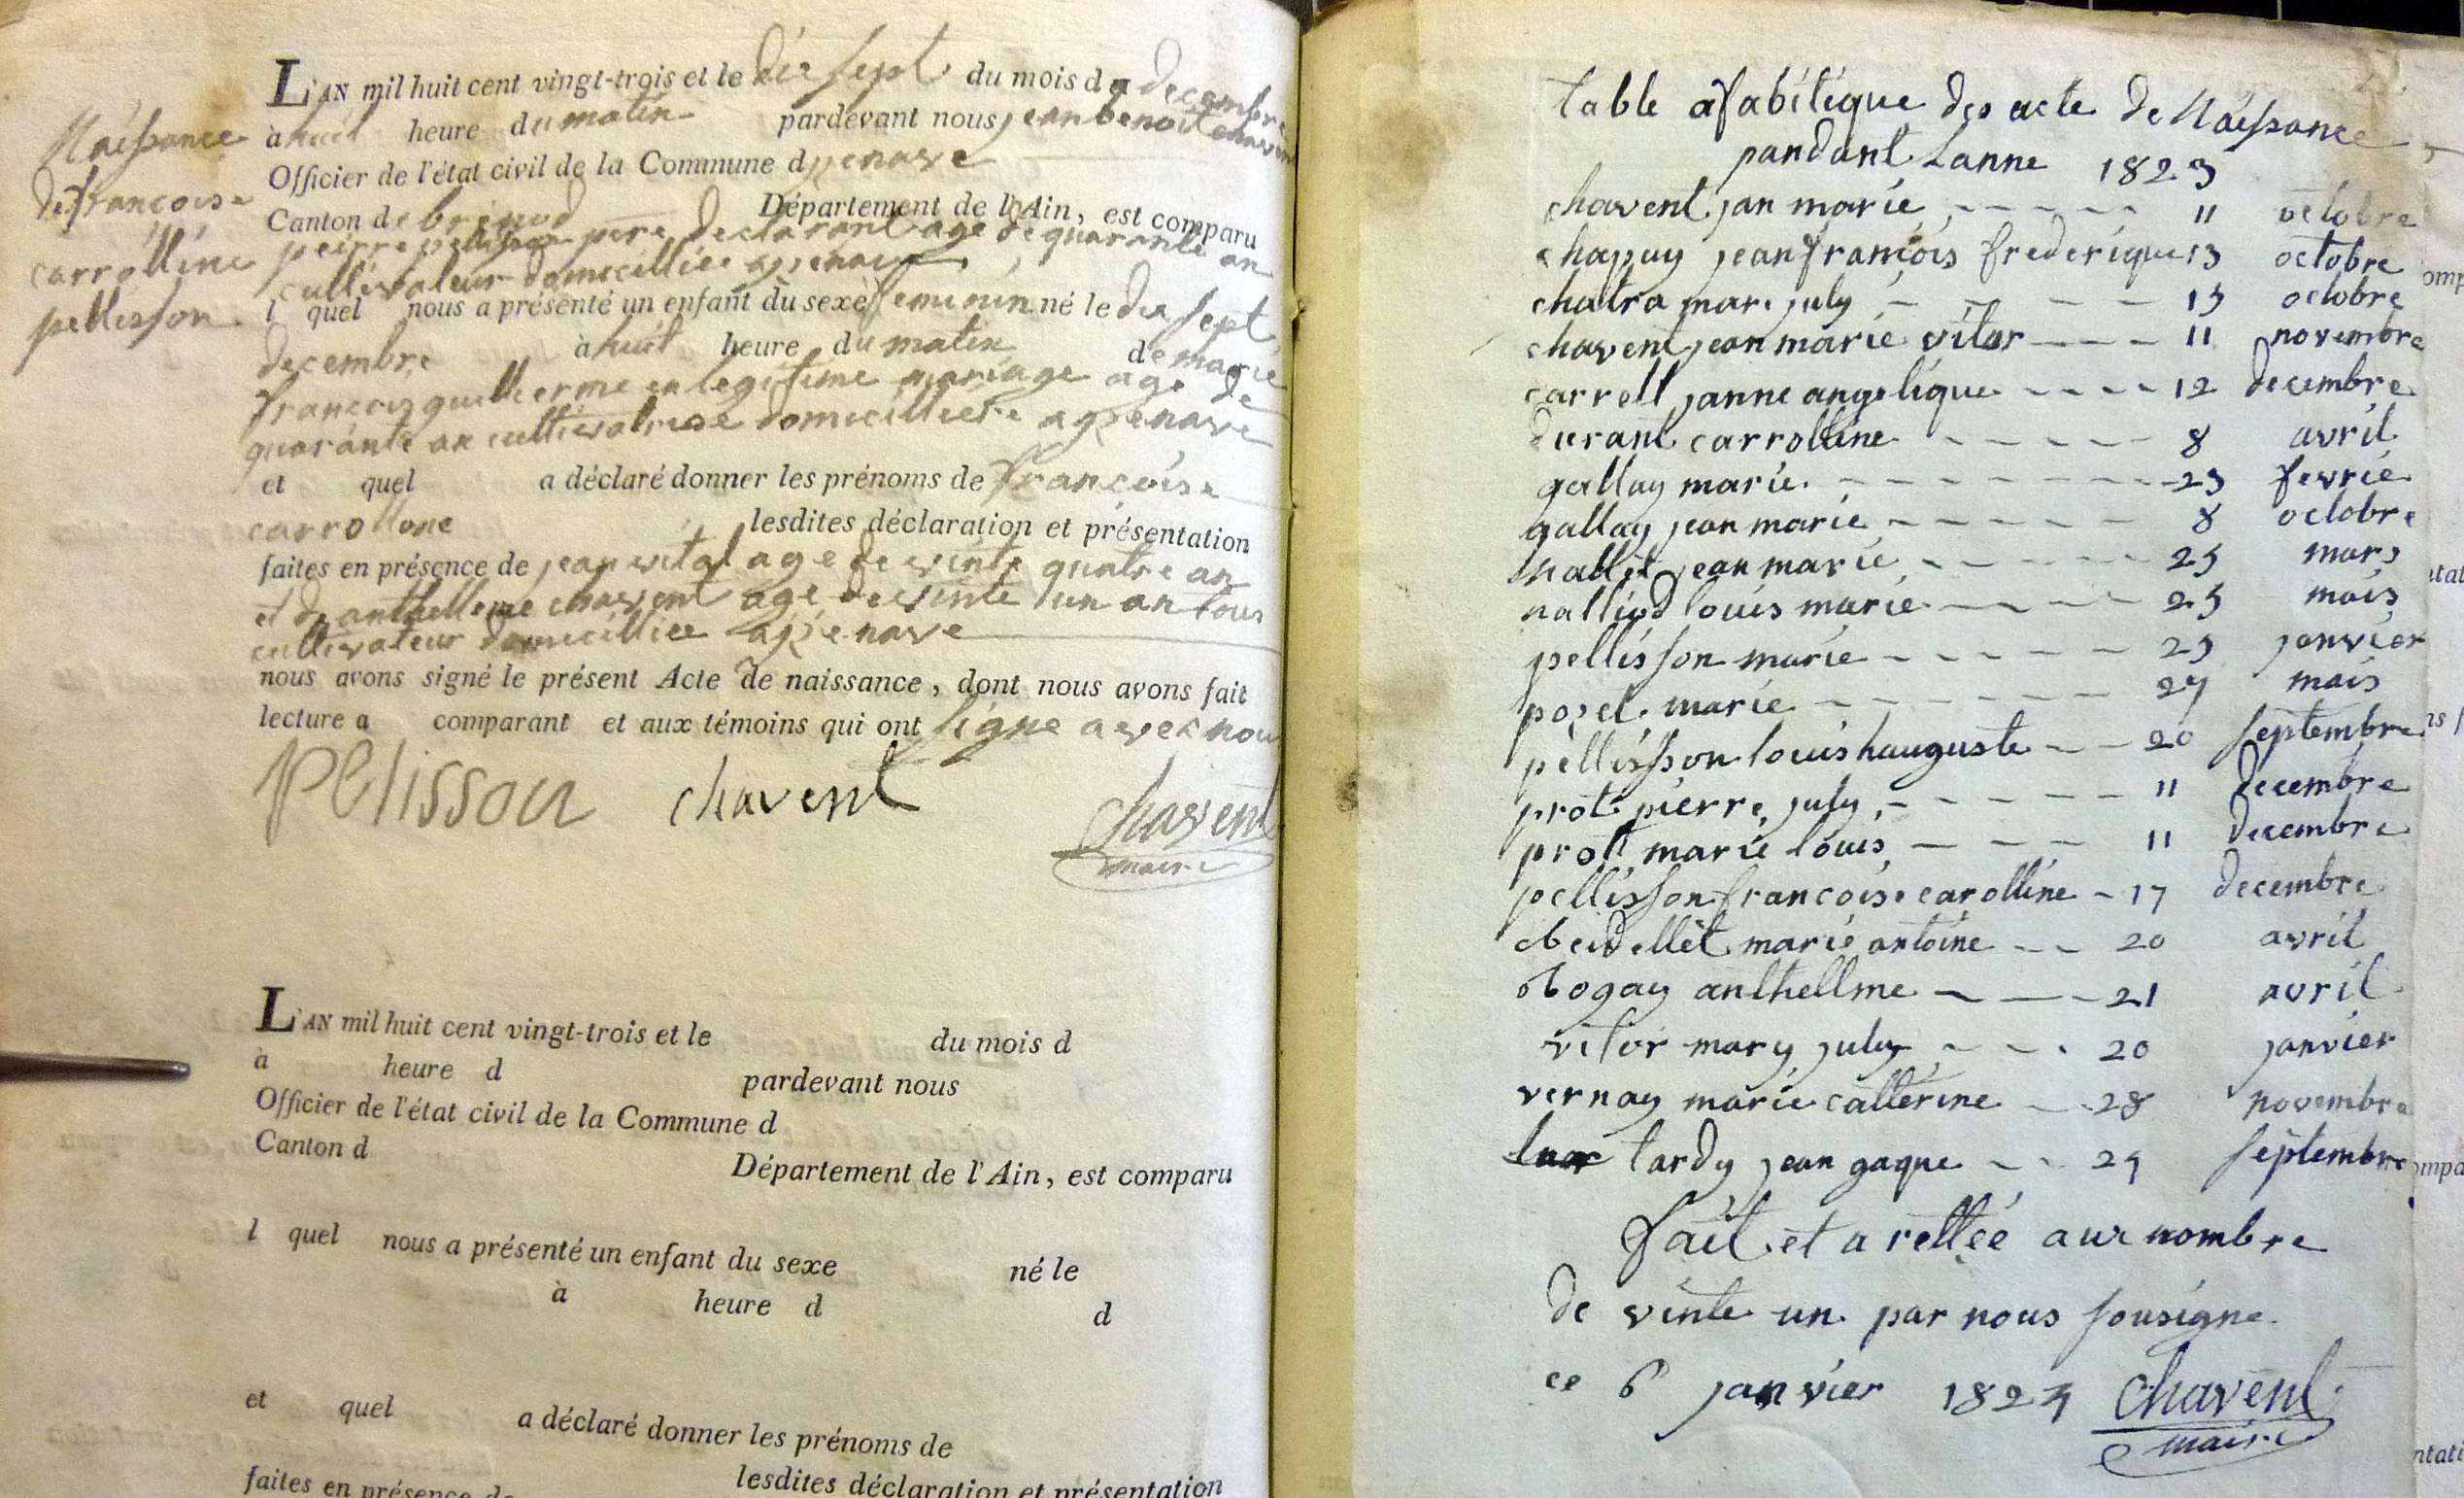 L'AN mil huit cent vingt-trois et le dix sept du mois de decembre
à huit heure du matin pardevant nous jean benoit chavent
Officier de l'état civil de la Commune d
Canton de brenod Département de l'Ain, est comparu
peirre pellisson pere declarant age de quarante an
cultivateur domicilliée
l quel nous a présenté un enfant du sexe feminin né le dix sept
decembre à huit heure du matin de marie
francois guillierme en legitime mariage age de
quarante an cultivatrise domicilliere
et quel a déclaré donner les prénoms de françoise
carrolline lesdites déclaration et présentation
faites en présence de jean vital age de vinte quatre an
et de anthellme chavent age de vinte un an tous
cultivateur domicilliée
nous avons signé le présent Acte de naissance, dont nous avons fait
lecture a comparant et aux témoins qui ont signe avec nou
Pelisson chavent
chavent
maire
Naissance
de françoise
carrolline
pellisson
L'AN mil huit cent vingt-trois et le du mois d
à heure d pardevant nous
Officier de l'état civil de la Commune d
Canton d
Département de l'Ain, est comparu
l quel nous a présenté un enfant du sexe né le
à heure d d
et quel a déclaré donner les prénoms de
lesdites déclaration et présentation
faites en présence de
table afabitique des acte de Naissance
pandant Lanne 1823
chavent jan marie 11 octobre
chapuy jean françois frederique 13 octobre
chatra mari july 13 octobre
chavent jean marie vitor 11 novembre
carrell janne angelique 12 decembre
durant carrolline 8 avril
gallay marie 23 fevrie
gallay jean marie 8 octobre
jean marie 25 mars
nalliod louis marie 25 mais
pellisson marie 23 janvier
marie 27 mais
pellisson louis hauguste 20 septembre
prot pierre july 11 decembre
prot marie louis 11 decembre
pellisson françoise carolline 17 decembre
marie antoine 20 avril
anthellme 21 avril
vitor mary july 20 janvier
vernay marie catterine 28 novembre
tardy jean gaque 24 septembre
fait et a rettée aux nombre
de vinte un par nous sousigne
ce 6 janvier 1824 chavent
maire